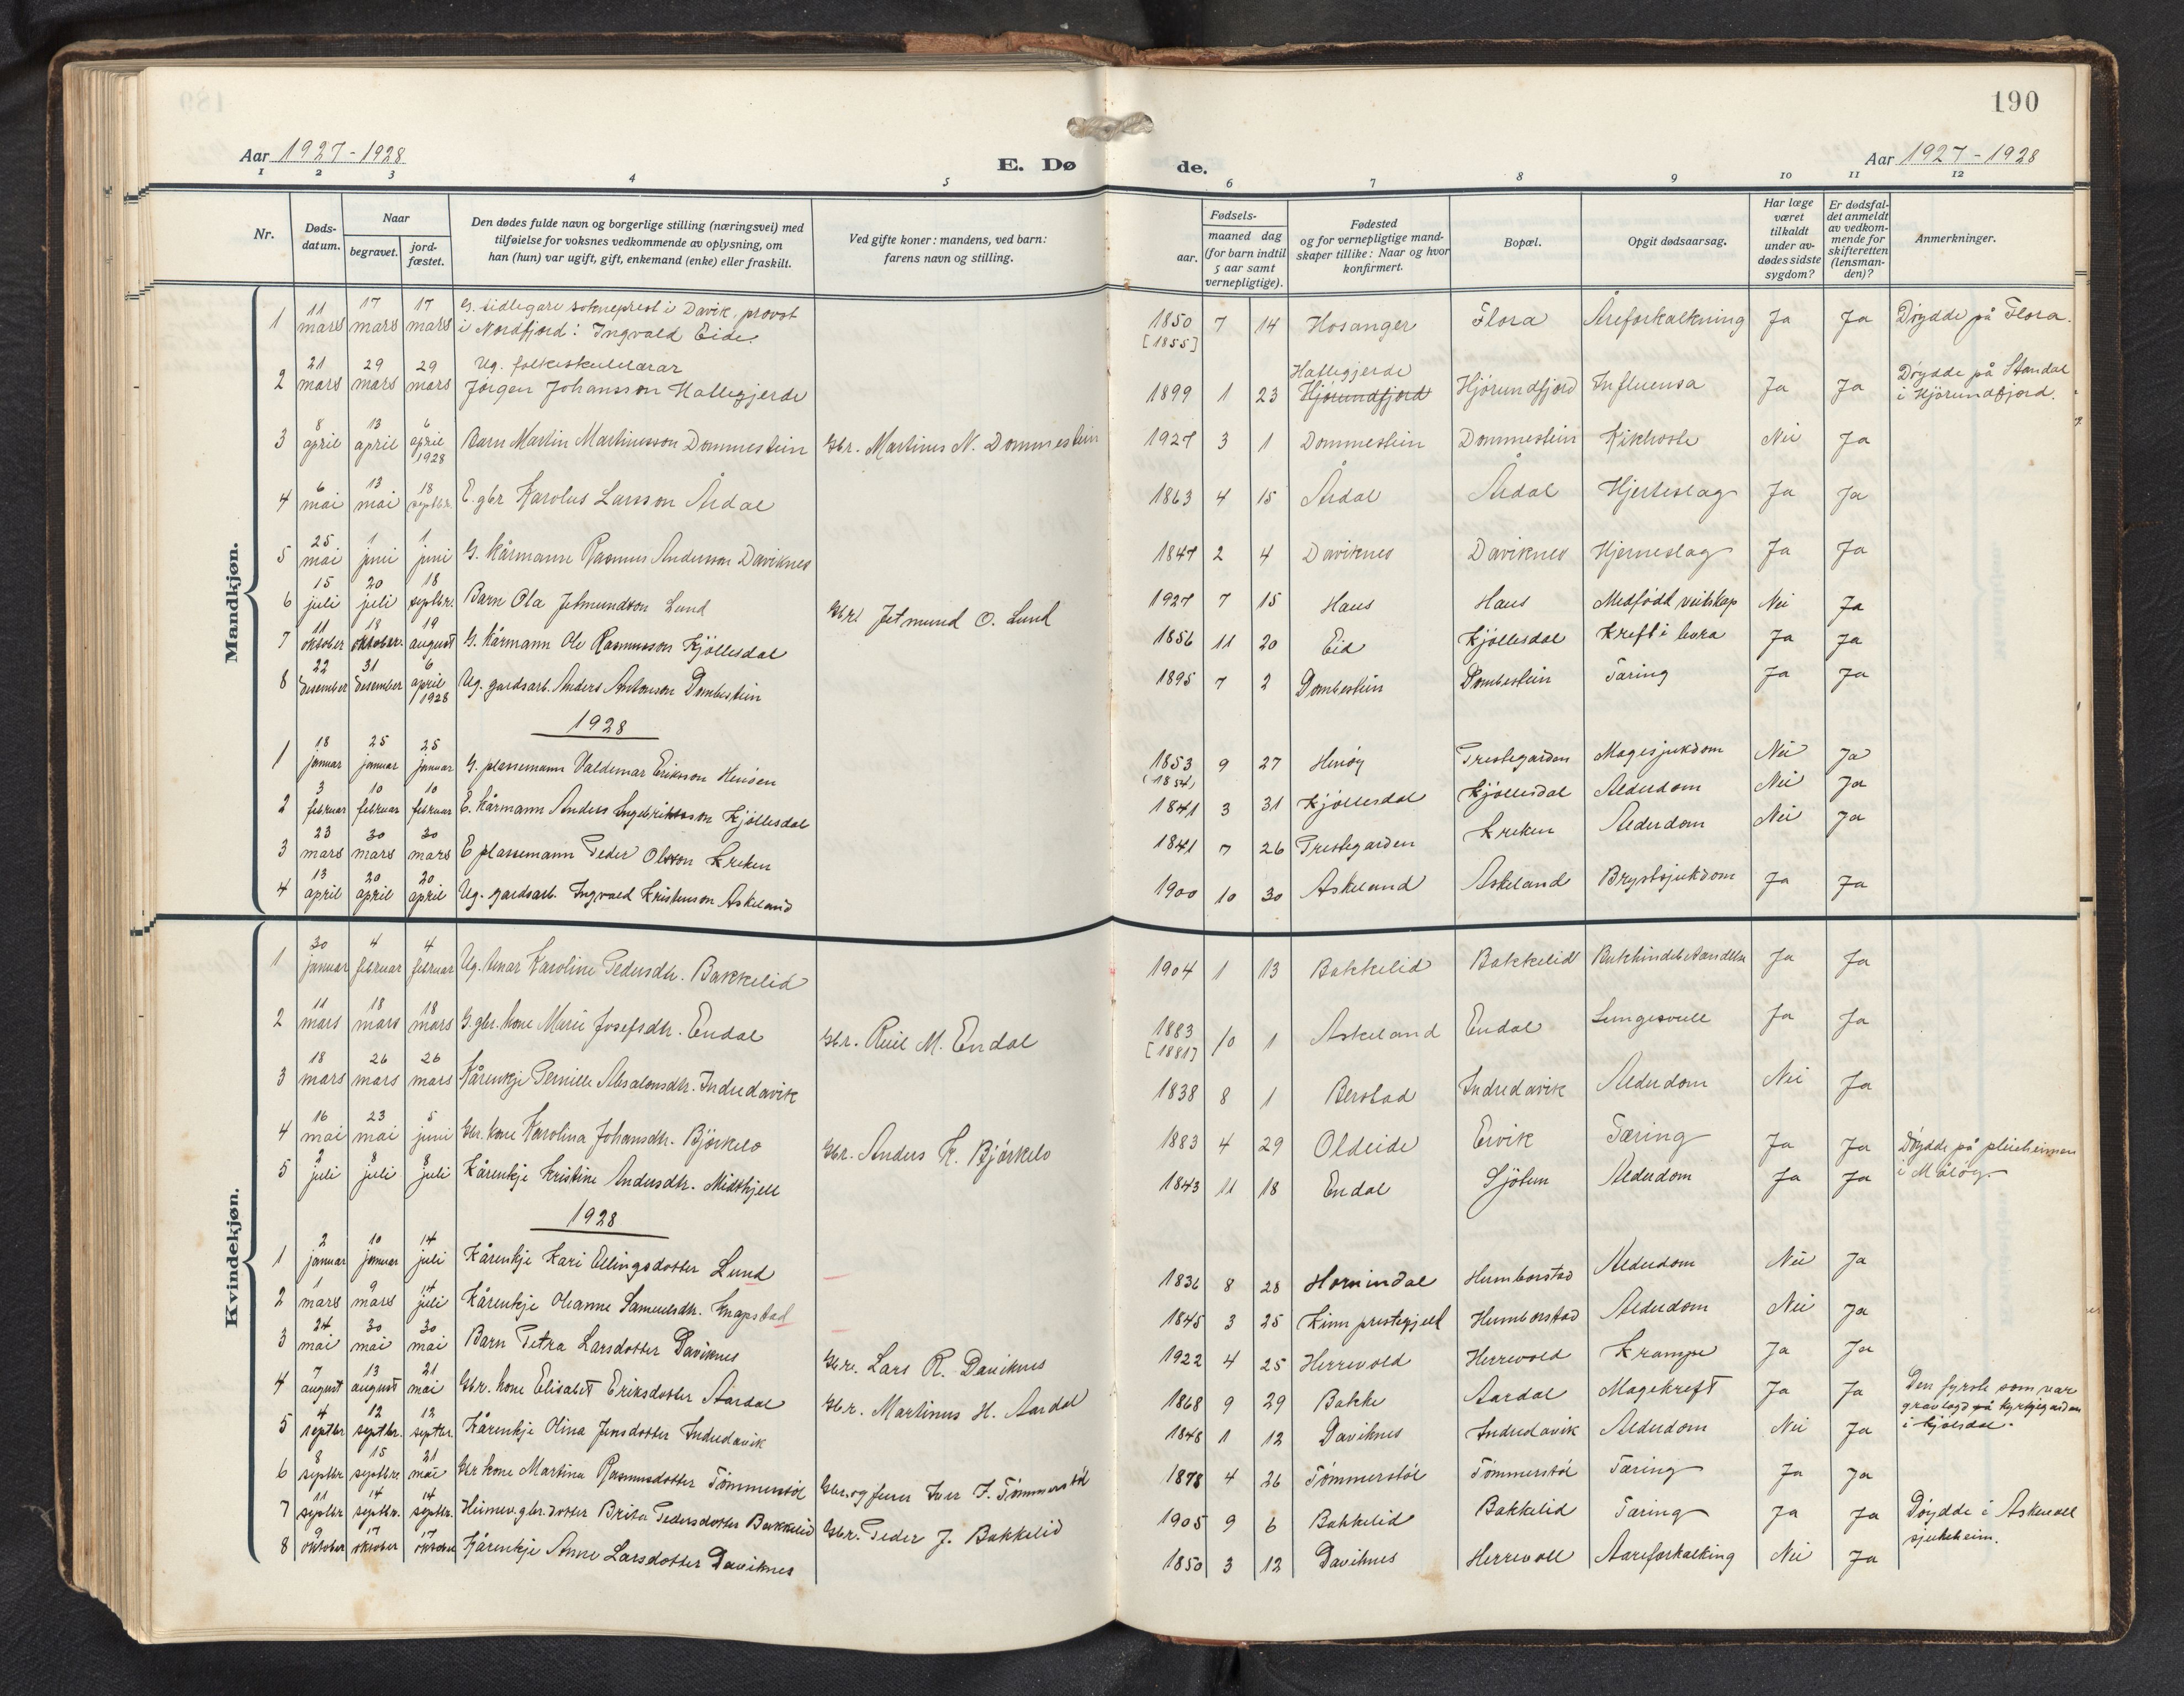 190
Aar 1927-1928
E. Døde.
Aar 1927-1928
1 2 3 4 5 6 7 8 9 10 11 12
Nr.
Døds-datum.
Naar
begravet.
jord-fæstet.
Den dødes fulde navn og borgerlige stilling (næringsvei) med
tilføielse for voksnes vedkommende av oplysning, om
han (hun) var ugift, gift, enkemand (enke) eller fraskilt.
Ved gifte koner: mandens, ved barn:
farens navn og stilling.
Fødsels-
aar. maaned dag
(for barn indtil
5 aar samt
vernepligtige).
Fødested
og for vernepligtige mand-
skaper tillike: Naar og hvor
konfirmert.
Bopæl.
Opgit dødsaarsag.
Har læge
været
tilkaldt
under av-
dødes sidste
sygdom?
Er dødsfal-
det anmeldt
av vedkom-
mende for
skifteretten
(lensman-
den)?
Anmerkninger.
Mandkjøn.
1 11 mars 17 mars 17 mars G. tidlegare sokneprest i Davik, provst i Nordfjord: Ingvald Eide. 1850 [1855] 7 14 Hosanger Flora Åreforkalkning Ja Ja Døydde på Flora.
2 21 mars 29 mars 29 mars Ug. folkeskulelærar Jørgen Johansson Hallegjerde 1899 1 23 Hallegjerde Hjørundfjord Hjørundfjord Influensa Ja Ja Døydde på Standal i Hjørundfjord.
3 8 april 13 april 6 april 1928 Barn Martin Martinusson Dommestein Gbr. Martinus N. Dommestein 1927 3 1 Dommestein Dommestein Kikhoste Nei Ja
4 6 mai 13 mai 18 septbr. E. gbr Karolus Larsson Årdal 1863 4 15 Årdal Årdal Hjerteslag Ja Ja
5 25 mai 1 juni 1 juni G. kårmann Rasmus Andersson Daviknes 1847 2 4 Daviknes Daviknes Hjerneslag Ja Ja
6 15 juli 20 juli 18 septbr. Barn Ola Jetmundson Lund Gbr. Jetmund O. Lund 1927 7 15 Haus Haus Medfødt veikskap Nei Ja
7 11 oktober 18 oktober. 19 august G. kårmann Ole Rasmusson Kjøllesdal 1856 11 20 Eid Kjøllesdal Kreft i Ja Ja
8 22 desember 31 desember 6 april 1928 Ug. gardsarb. Anders Antonson Dombestein 1895 7 2 Dombestein Dombestein Tæring Ja Ja
1928
1 18 januar 25 januar 25 januar G. plassemann Valdemar Erikson Henøen 1853 (1854) 9 27 Henøy Prestegarden Magesjukdom Nei Ja
2 3 februar 10 februar 10 februar E. kårmann Anders Ingebriktsson Kjøllesdal 1841 3 31 Kjøllesdal Kjøllesdal Alderdom Nei Ja
3 23 mars 30 mars 30 mars E plassemann Peder Olsson Kreken 1841 7 26 Prestegarden Kreken Alderdom Nei Ja
4 13 april 20 april 20 april Ug. gardsarb. Ingvald Kristenson Askeland 1900 10 30 Askeland Askeland Brystsjukdom Ja Ja
Kvindekjøn.
1 30 januar 4 februar 4 februar Ug. Karoline Pedersdtr. Bakkelid 1904 1 13 Bakkelid Bakkelid Ja Ja
2 11 mars 18 mars 18 mars G. gbr. kone Marie Josefsdtr. Endal Gbr. M. Endal 1883 [1881] 10 1 Askeland Endal Ja Ja
3 18 mars 26 mars 26 mars Kårenkje Pernille Absalonsdtr. Indredavik 1838 8 1 Berstad Indredavik Alderdom Nei Ja
4 16 mai 23 mai 5 juni Gbr. kone Karolina Johansdtr. Bjørkelo Gbr. Anders K. Bjørkelo 1883 4 29 Oldeide Ervik Tæring Ja Ja Døydde på pleieheimen i Måløy.
5 2 juli 8 juli 8 juli Kårenkje Kristine Andersdtr. Midthjell 1843 11 18 Endal Sjøtun Alderdom Ja Ja
1928
1 2 januar 10 januar 14 juli Kårenkje Kari Ellingsdotter Lund 1836 8 28 Hornindal Humborstad Alderdom Nei Ja
2 1 mars 9 mars 14 juli Kårenkje Oleanne Samuelsdtr. Knapstad 1845 3 25 Kinn prestegjeld Humborstad Alderdom Nei Ja
3 24 mai 30 mai 30 mai Barn Petra Larsdotter Daviknes Gbr. Lars R. Daviknes 1922 4 25 Herrevold Herrevold Krampe Ja Ja
4 7 august 13 august 21 mai Gbr. kone Elisabet Eriksdotter Aardal Gbr. Martinus H. Aardal 1868 9 29 Bakke Aardal Magekreft Ja Ja Den fyrste som var gravlagd på kyrkjegarden i Kjølsdal.
5 4 septbr 12 septbr. 12 septbr Kårenkje Olina Jensdotter Indredavik 1848 1 12 Daviknes Indredavik Alderdom Nei Ja
6 8 septbr 15 septbr. 21 mai Gbr kone Martina Rasmusdotter Tømmerstøl Gbr. og furer Iver J. Tømmerstøl 1878 4 26 Tømmerstøl Tømmerstøl Tæring Ja Ja
7 11 septbr 14 septbr. 14 septbr. Heimev. gbr. dotter Brita Pedersdotter Bakkelid Gbr. Peder J. Bakkelid 1905 9 6 Bakkelid Bakkelid Tæring Ja Ja Døydde i Askevoll sjukeheim.
8 9 oktober 17 oktober 17 oktober Kårenkje Anne Larsdotter Daviknes 1850 3 12 Daviknes Herrevoll Aareforkalking Nei Ja